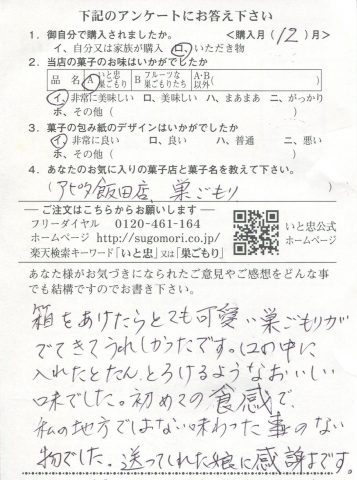 下記のアンケートにお答え下さい
1．御自分で購入されましたか。 ＜購入月（12）月＞
イ、自分又は家族が購入 ロ、いただき物
2．当店の菓子のお味はいかがでしたか
品 名 A いと忠巣ごもり B フルーツな巣ごもりたち A・B以外（ ）
イ、非常に美味しい ロ、美味しい ハ、まあまあ ニ、がっかり
ホ、その他（ ）
3．菓子の包み紙のデザインはいかがでしたか
イ、非常に良い ロ、良い ハ、普通 ニ、悪い
ホ、その他（ ）
4．あなたのお気に入りの菓子店と菓子名を教えて下さい。
（アピタ飯田店、巣ごもり ）
― ご注文はこちらからお願いします ―
フリーダイヤル 0120-461-164
ホームページ http://sugomori.co.jp/
楽天検索キーワード「いと忠」又は「巣ごもり」
いと忠公式
ホームページ
あなた様がお気づきになられたご意見やご感想をどんな事
でも結構ですのでお書き下さい。
箱をあけたらとても可愛い巣ごもりが
でてきてうれしかったです。口の中に
入れたとたん、とろけるようなおいしい
味でした。初めての食感で、
私の地方ではない味わった事のない
物でした。送ってくれた娘に感謝です。